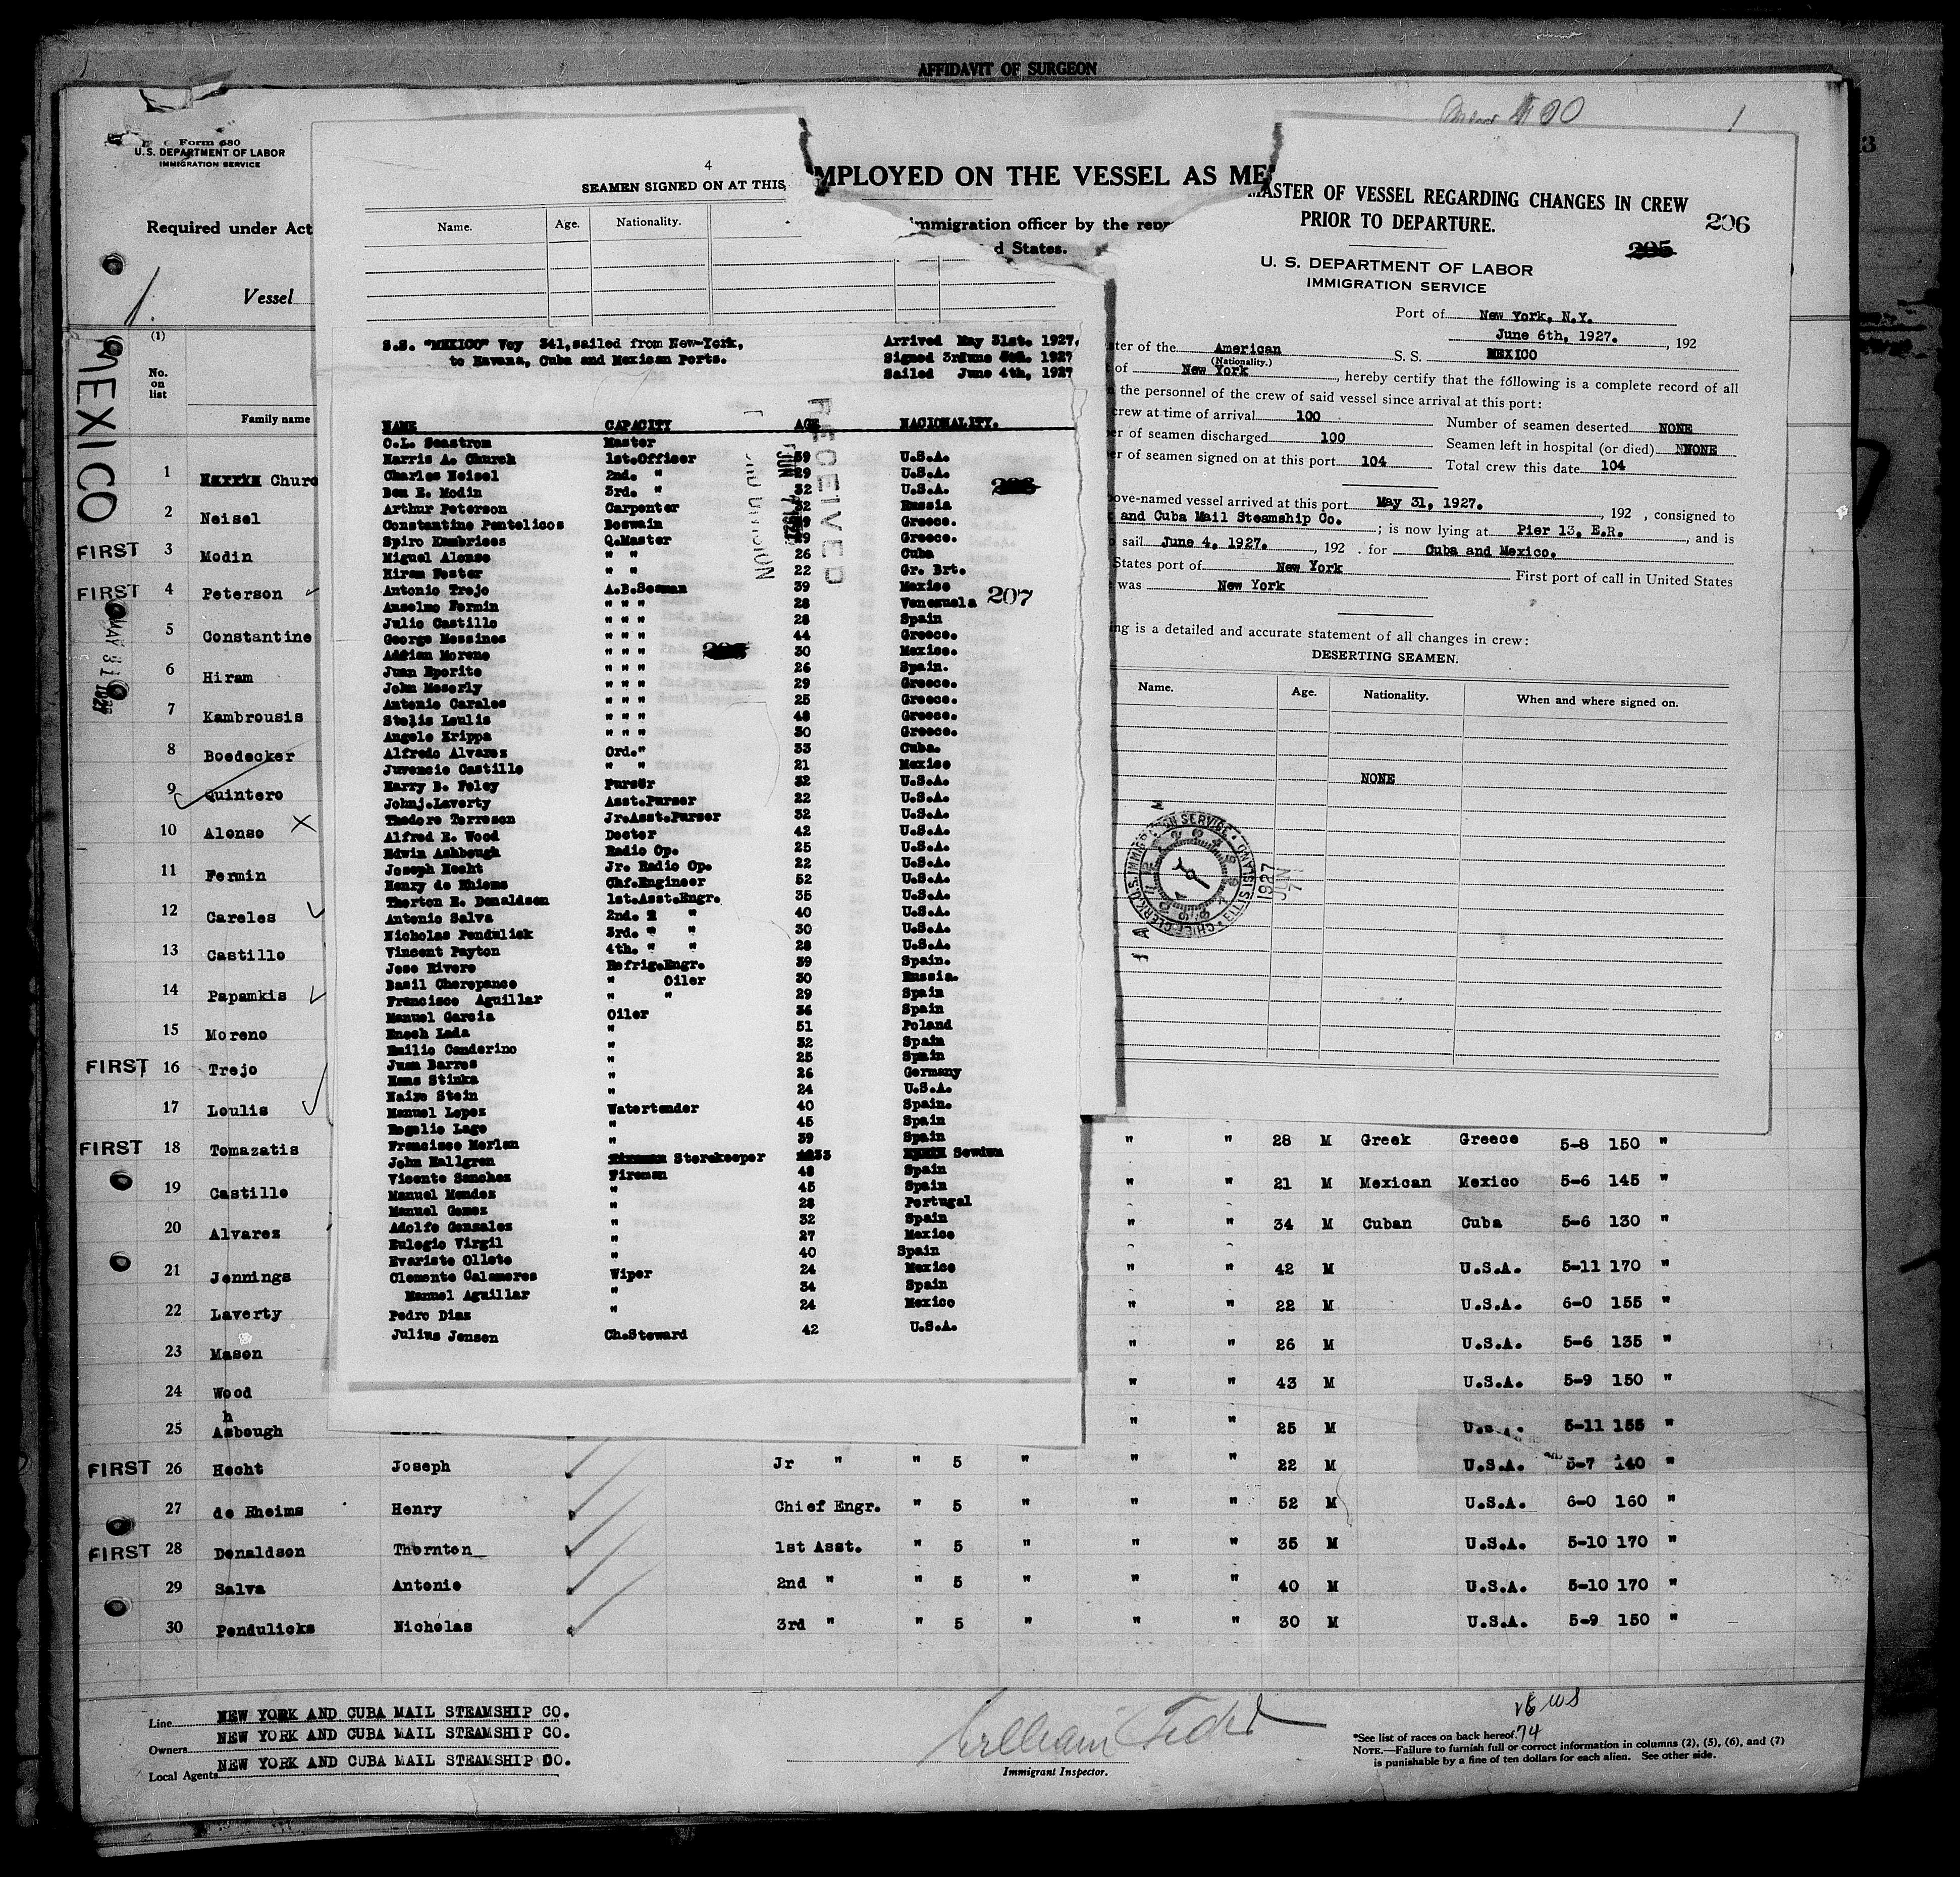 AFFIDAVIT OF SURGEON
Form 680
U.S. DEPARTMENT OF LABOR
IMMIGRATION SERVICE
Required under Act
Vessel
MEXICO
(1)
No. on list
Family name
1 Churc
2 Neisel
FIRST 3 Modin
FIRST 4 Peterson
5 Constantine
6 Hiram
7 Kambrousis
8 Boedecker
9 Quintero
10 Alonso
11 Fermin
12 Careles
13 Castillo
14 Papamkis
15 Moreno
FIRST 16 Trejo
17 Loulis
FIRST 18 Tomazatis " " 28 M Greek Greece 5-8 150 "
19 Castille " " 21 M Mexican Mexico 5-6 145 "
20 Alvarez " " 34 M Cuban Cuba 5-6 130 "
21 Jennings " " 42 M U.S.A. 5-11 170 "
22 Laverty " " 22 M U.S.A. 6-0 155 "
23 Mason " " 26 M U.S.A. 5-6 135 "
24 Wood " " 43 M U.S.A. 5-9 150 "
h
25 Asbough " " 25 M U.S.A. 5-11 155 "
FIRST 26 Hecht Joseph Jr " " 5 " " " 22 M U.S.A. 5-7 140 "
27 de Rheims Henry Chief Engr. " 5 " " " 52 M U.S.A. 6-0 160 "
FIRST 28 Donaldson Thornton 1st Asst. " 5 " " " 35 M U.S.A. 5-10 170 "
29 Salva Antonio 2nd " " 5 " " " 40 M U.S.A. 5-10 170 "
30 Pendulicks Nicholas 3rd " " 5 " " " 30 M U.S.A. 5-9 150 "
Line NEW YORK AND CUBA MAIL STEAMSHIP CO.
Owners NEW YORK AND CUBA MAIL STEAMSHIP CO.
Local Agents NEW YORK AND CUBA MAIL STEAMSHIP CO.
Immigrant Inspector.
74
*See list of races on back hereof.
NOTE.—Failure to furnish full or correct information in columns (2), (5), (6), and (7)
is punishable by a fine of ten dollars for each alien. See other side.
MAY 31 1927
4
SEAMEN SIGNED ON AT THIS
Name. Age. Nationality.
MPLOYED ON THE VESSEL AS ME
immigration officer by the repr
d States.
S.S. "MEXICO" Voy 341, sailed from New-York,
to Havana, Cuba and Mexican Ports.
Arrived May 31st. 1927.
Signed 3rd June 1927
Sailed June 4th, 1927
RECEIVED
JUN 7 1927
NAME CAPACITY AGE NACIONALITY.
O.L. Seastrom Master
Harris A. Church 1st.Officer 39 U.S.A.
Charles Neisel 2nd. " 29 U.S.A.
Ben E. Modin 3rd. " 32 U.S.A.
Arthur Peterson Carpenter 32 Russia
Constantine Pantelicos Boswain 39 Greece.
Spiro Kambrises Q.Master 29 Greece.
Miguel Alonso " " 26 Cuba
Hiram Foster " " 22 Gr. Brt.
Antonio Trejo A.B.Seaman 39 Mexico
Anselmo Fermin " " " 28 Venezuela
207
Julio Castillo " " " 28 Spain
George Messines " " " 44 Greece.
Adrian Moreno " " " 30 Mexico.
Juan Eporite " " " 26 Spain.
John Moserly " " " 29 Greece.
Antonio Carales " " " 25 Greece.
Stelis Loulis " " " 48 Greece.
Angelo Krippa " " " 30 Greece.
Alfredo Alvarez Ord." 33 Cuba.
Juvencio Castillo " " 21 Mexico
Harry B. Foley Purser 32 U.S.A.
Johnj.Laverty Asst.Purser 22 U.S.A.
Thedore Torreson Jr.Asst.Purser 32 U.S.A.
Alfred E. Wood Doctor 42 U.S.A.
Edwin Ashbough Radio Op. 25 U.S.A.
Joseph Hecht Jr. Radio Op. 22 U.S.A.
Henry de Rhiems Chf.Engineer 52 U.S.A.
Thorton E. Donaldson 1st.Asst.Engr. 35 U.S.A.
Antonio Salva 2nd. " " 40 U.S.A.
Nicholas Pendulick 3rd. " " 30 U.S.A.
Vincent Payton 4th. " " 28 U.S.A.
Jose Rivero Refrig.Engr. 39 Spain.
Basil Cherepance " Oiler 30 Russia.
Francisco Aguillar " " 29 Spain
Manuel Garcia Oiler 36 Spain
Enoch Lada " 51 Poland
Emilio Canderino " 32 Spain
Juan Barros " 25 Spain
Hans Stinka " 26 Germany
Naire Stein " 24 U.S.A.
Manuel Lopez Watertender 40 Spain.
Rogelio Lago " 45 Spain
Francisco Merlan " 39 Spain
John Hallgren Storekeeper 33 Sewdun
Vicente Sanchez Fireman 48 Spain
Manuel Mendez " 45 Spain
Manuel Gomez " 28 Portugal
Adolfo Gonzalez " 32 Spain
Eulogio Virgil " 27 Mexico
Evariste Ollete " 40 Spain
Clemente Calameres Wiper 24 Mexico
Manuel Aguillar " 34 Spain
Pedro Diaz " 24 Mexico
Julius Jensen Ch.Steward 42 U.S.A.
MASTER OF VESSEL REGARDING CHANGES IN CREW
PRIOR TO DEPARTURE.
206
205
U. S. DEPARTMENT OF LABOR
IMMIGRATION SERVICE
Port of New York, N.Y.
June 6th, 1927. , 192
ster of the American S. S. MEXICO
(Nationality.)
t of New York , hereby certify that the following is a complete record of all
n the personnel of the crew of said vessel since arrival at this port:
crew at time of arrival 100 Number of seamen deserted NONE
er of seamen discharged 100 Seamen left in hospital (or died) NNONE
er of seamen signed on at this port 104 Total crew this date 104
ove-named vessel arrived at this port May 31, 1927. , 192 , consigned to
and Cuba Mail Steamship Co. ; is now lying at Pier 13, E.R. , and is
o sail June 4, 1927. , 192 . for Cuba and Mexico.
States port of New York First port of call in United States
was New York
ng is a detailed and accurate statement of all changes in crew:
DESERTING SEAMEN.
Name. Age. Nationality. When and where signed on.
NONE
CHIEF CLERK, U.S. IMMIGRATION SERVICE ELLIS ISLAND
1927
JUN 7